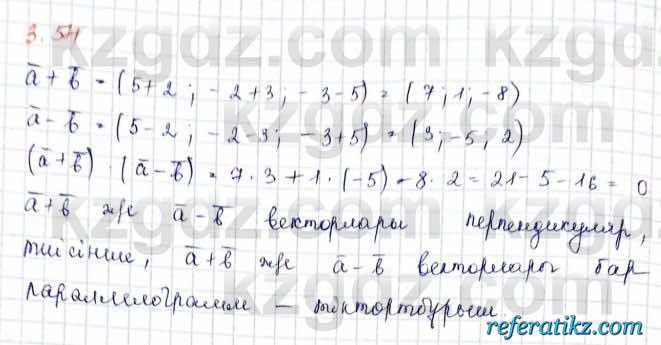 3.54
ā + b̄ = (5+2; -2+3; -3-5) = (7; 1; -8)
ā - b̄ = (5-2; -2-3; -3+5) = (3; -5; 2)
(ā + b̄) · (ā - b̄) = 7·3 + 1·(-5) - 8·2 = 21 - 5 - 16 = 0
ā + b̄ және ā - b̄ векторлары перпендикуляр,
тиісінше, ā + b̄ және ā - b̄ векторлары бар
параллелограмм – тіктөртбұрыш.
kzgaz.com kzgaz.com
referatikz.com